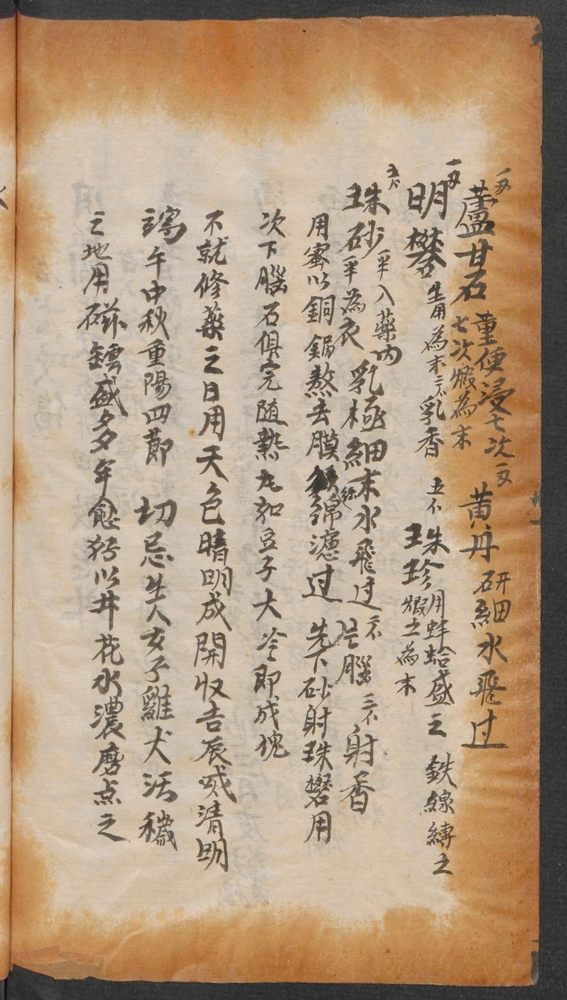 一両蘆甘石 童便浸七次 七次煅為末 一両黄丹 研細水飛过
一両明礬 生用為末 三分乳香 五分珠珍 用蚌蛤盛之 煅之為末 鉄線縛之
五分珠砂 半入薬内 半為衣 乳極細末水飛过 片腦 三分射香
用蜜以銅鍋熬去膜 綿濾过 先下砂射珠礬用
次下腦石俱完随熱丸如豆子大冷即成塊
不就修薬之日用天色晴明成開收吉辰或清明
端午中秋重陽四節 切忌生人女子雞犬活穢
之地用磁罐盛多年愈好以井花水濃磨点之